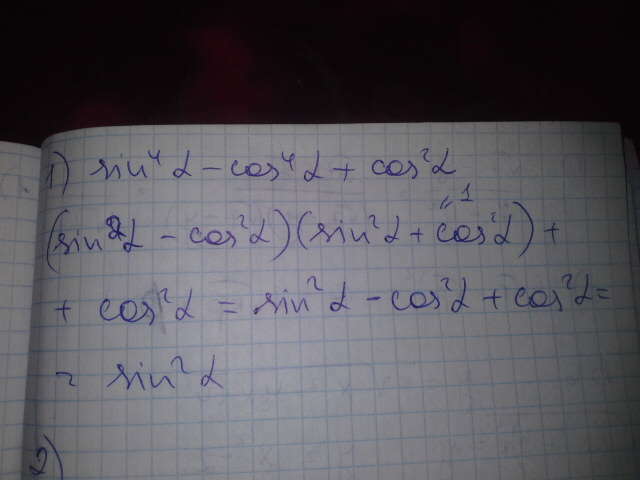 1) sin⁴α - cos⁴α + cos²α
(sin²α - cos²α)(sin²α + cos²α) + "1
+ cos²α = sin²α - cos²α + cos²α =
= sin²α
2)